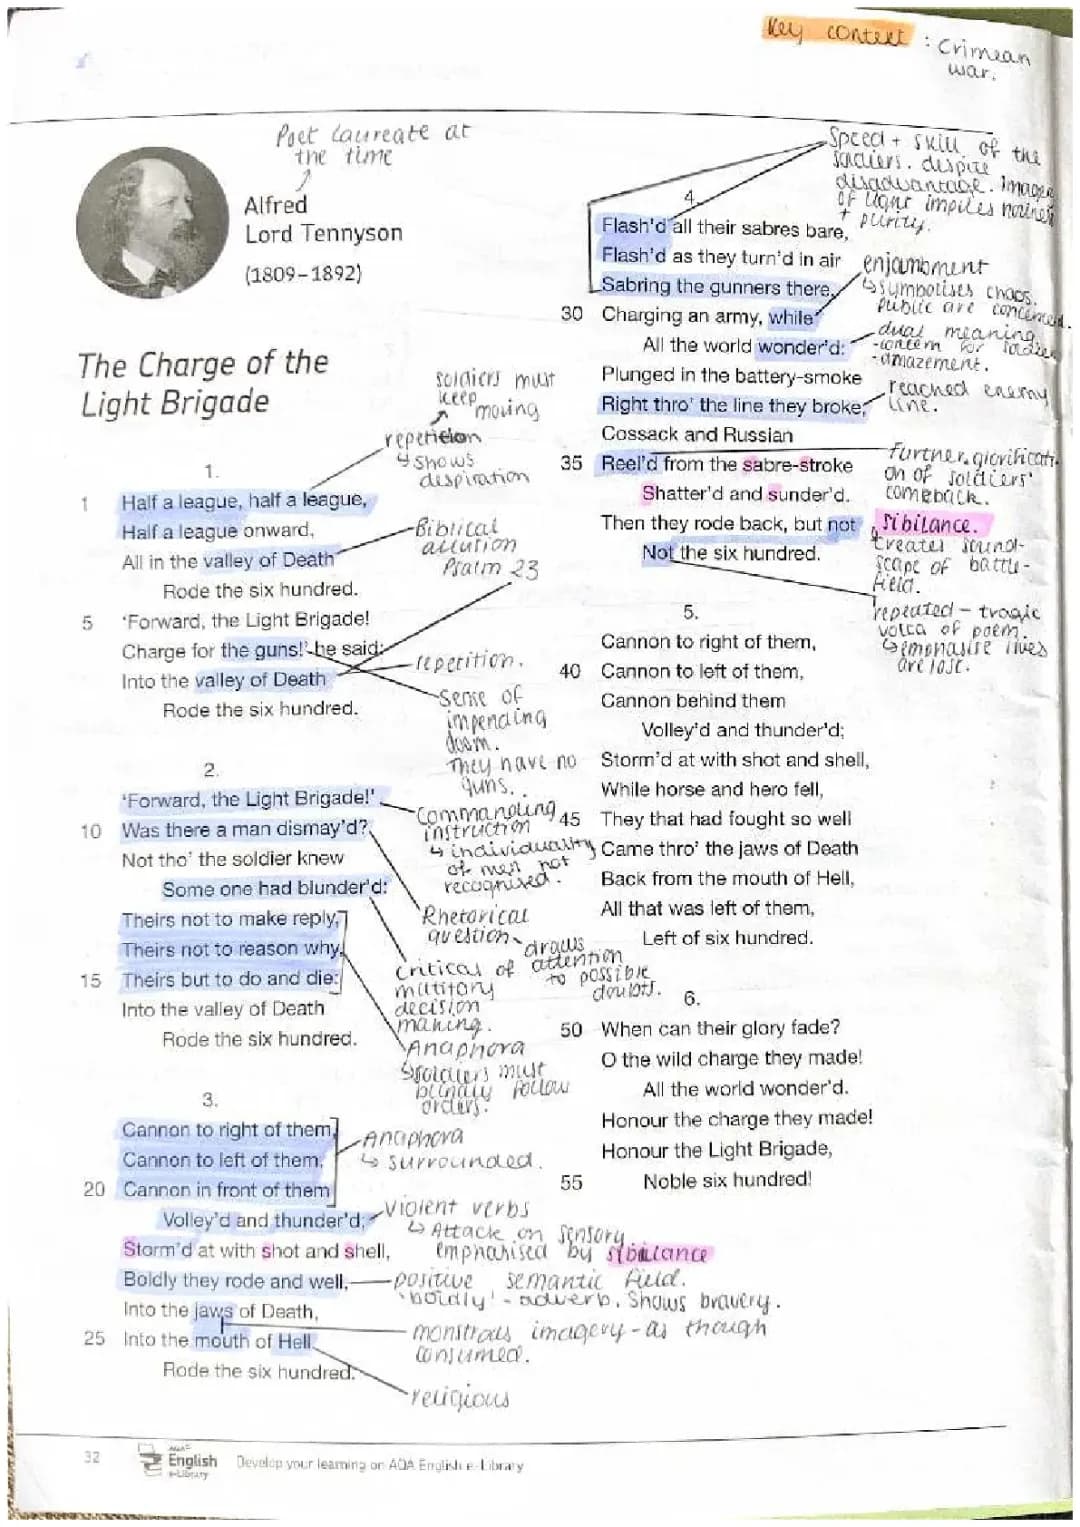 Key context : Crimean
war.
Poet Laureate at
the time
Alfred
Lord Tennyson
(1809–1892)
The Charge of the
Light Brigade
soldiers must
keep
moving
repetition
↳ shows
1.
1 Half a league, half a league,
Half a league onward,
All in the valley of Death
Rode the six hundred.
Biblical
allution
Psalm 23
5 'Forward, the Light Brigade!
Charge for the guns!' he said:
Into the valley of Death
Rode the six hundred.
repetition.
Sense of
impending
doom.
They have no
guns.
2.
'Forward, the Light Brigade!'
10 Was there a man dismay'd?
Not tho' the soldier knew
Some one had blunder'd:
Theirs not to make reply,
Theirs not to reason why,
15 Theirs but to do and die:
Into the valley of Death
Rode the six hundred.
Commanding
instruction
↳ individuality
of men not
recognised.
Rhetorical
question
draws
attention
to possible
doubts.
critical of
military
decision
making.
Anaphora
↳ soldiers must
blindly follow
orders.
3.
Cannon to right of them,
Cannon to left of them,
20 Cannon in front of them
Volley'd and thunder'd;
Storm'd at with shot and shell,
Boldly they rode and well,
Into the jaws of Death,
25 Into the mouth of Hell
Rode the six hundred.
Anaphora
↳ surrounded.
Violent verbs
↳ Attack on sensory
emphasised by sibilance
positive semantic field.
'boldly' - adverb. Shows bravery.
monstrous imagery - as though
consumed.
religious
Speed + skill of the
soldiers. despite
disadvantage. Image
of light implies
+ purity.
4.
Flash'd all their sabres bare,
Flash'd as they turn'd in air
Sabring the gunners there,
30 Charging an army, while
All the world wonder'd:
Plunged in the battery-smoke
Right thro' the line they broke;
Cossack and Russian
35 Reel'd from the sabre-stroke
Shatter'd and sunder'd.
Then they rode back, but not
Not the six hundred.
enjambment
↳ symbolises chaos.
public are concerned.
dual meaning
-concern for soldiers
-amazement.
reached enemy
line.
Further glorificati-
on of soldiers'
comeback.
sibilance.
↳ creates sound-
scape of battle-
field.
repeated - tragic
volta of poem.
↳ emphasise lives
are lost.
5.
Cannon to right of them,
40 Cannon to left of them,
Cannon behind them
Volley'd and thunder'd;
Storm'd at with shot and shell,
While horse and hero fell,
45 They that had fought so well
Came thro' the jaws of Death
Back from the mouth of Hell,
All that was left of them,
Left of six hundred.
6.
50 When can their glory fade?
O the wild charge they made!
All the world wonder'd.
Honour the charge they made!
Honour the Light Brigade,
55 Noble six hundred!
32
AQA
English
e-Library
Develop your learning on AQA English e-Library